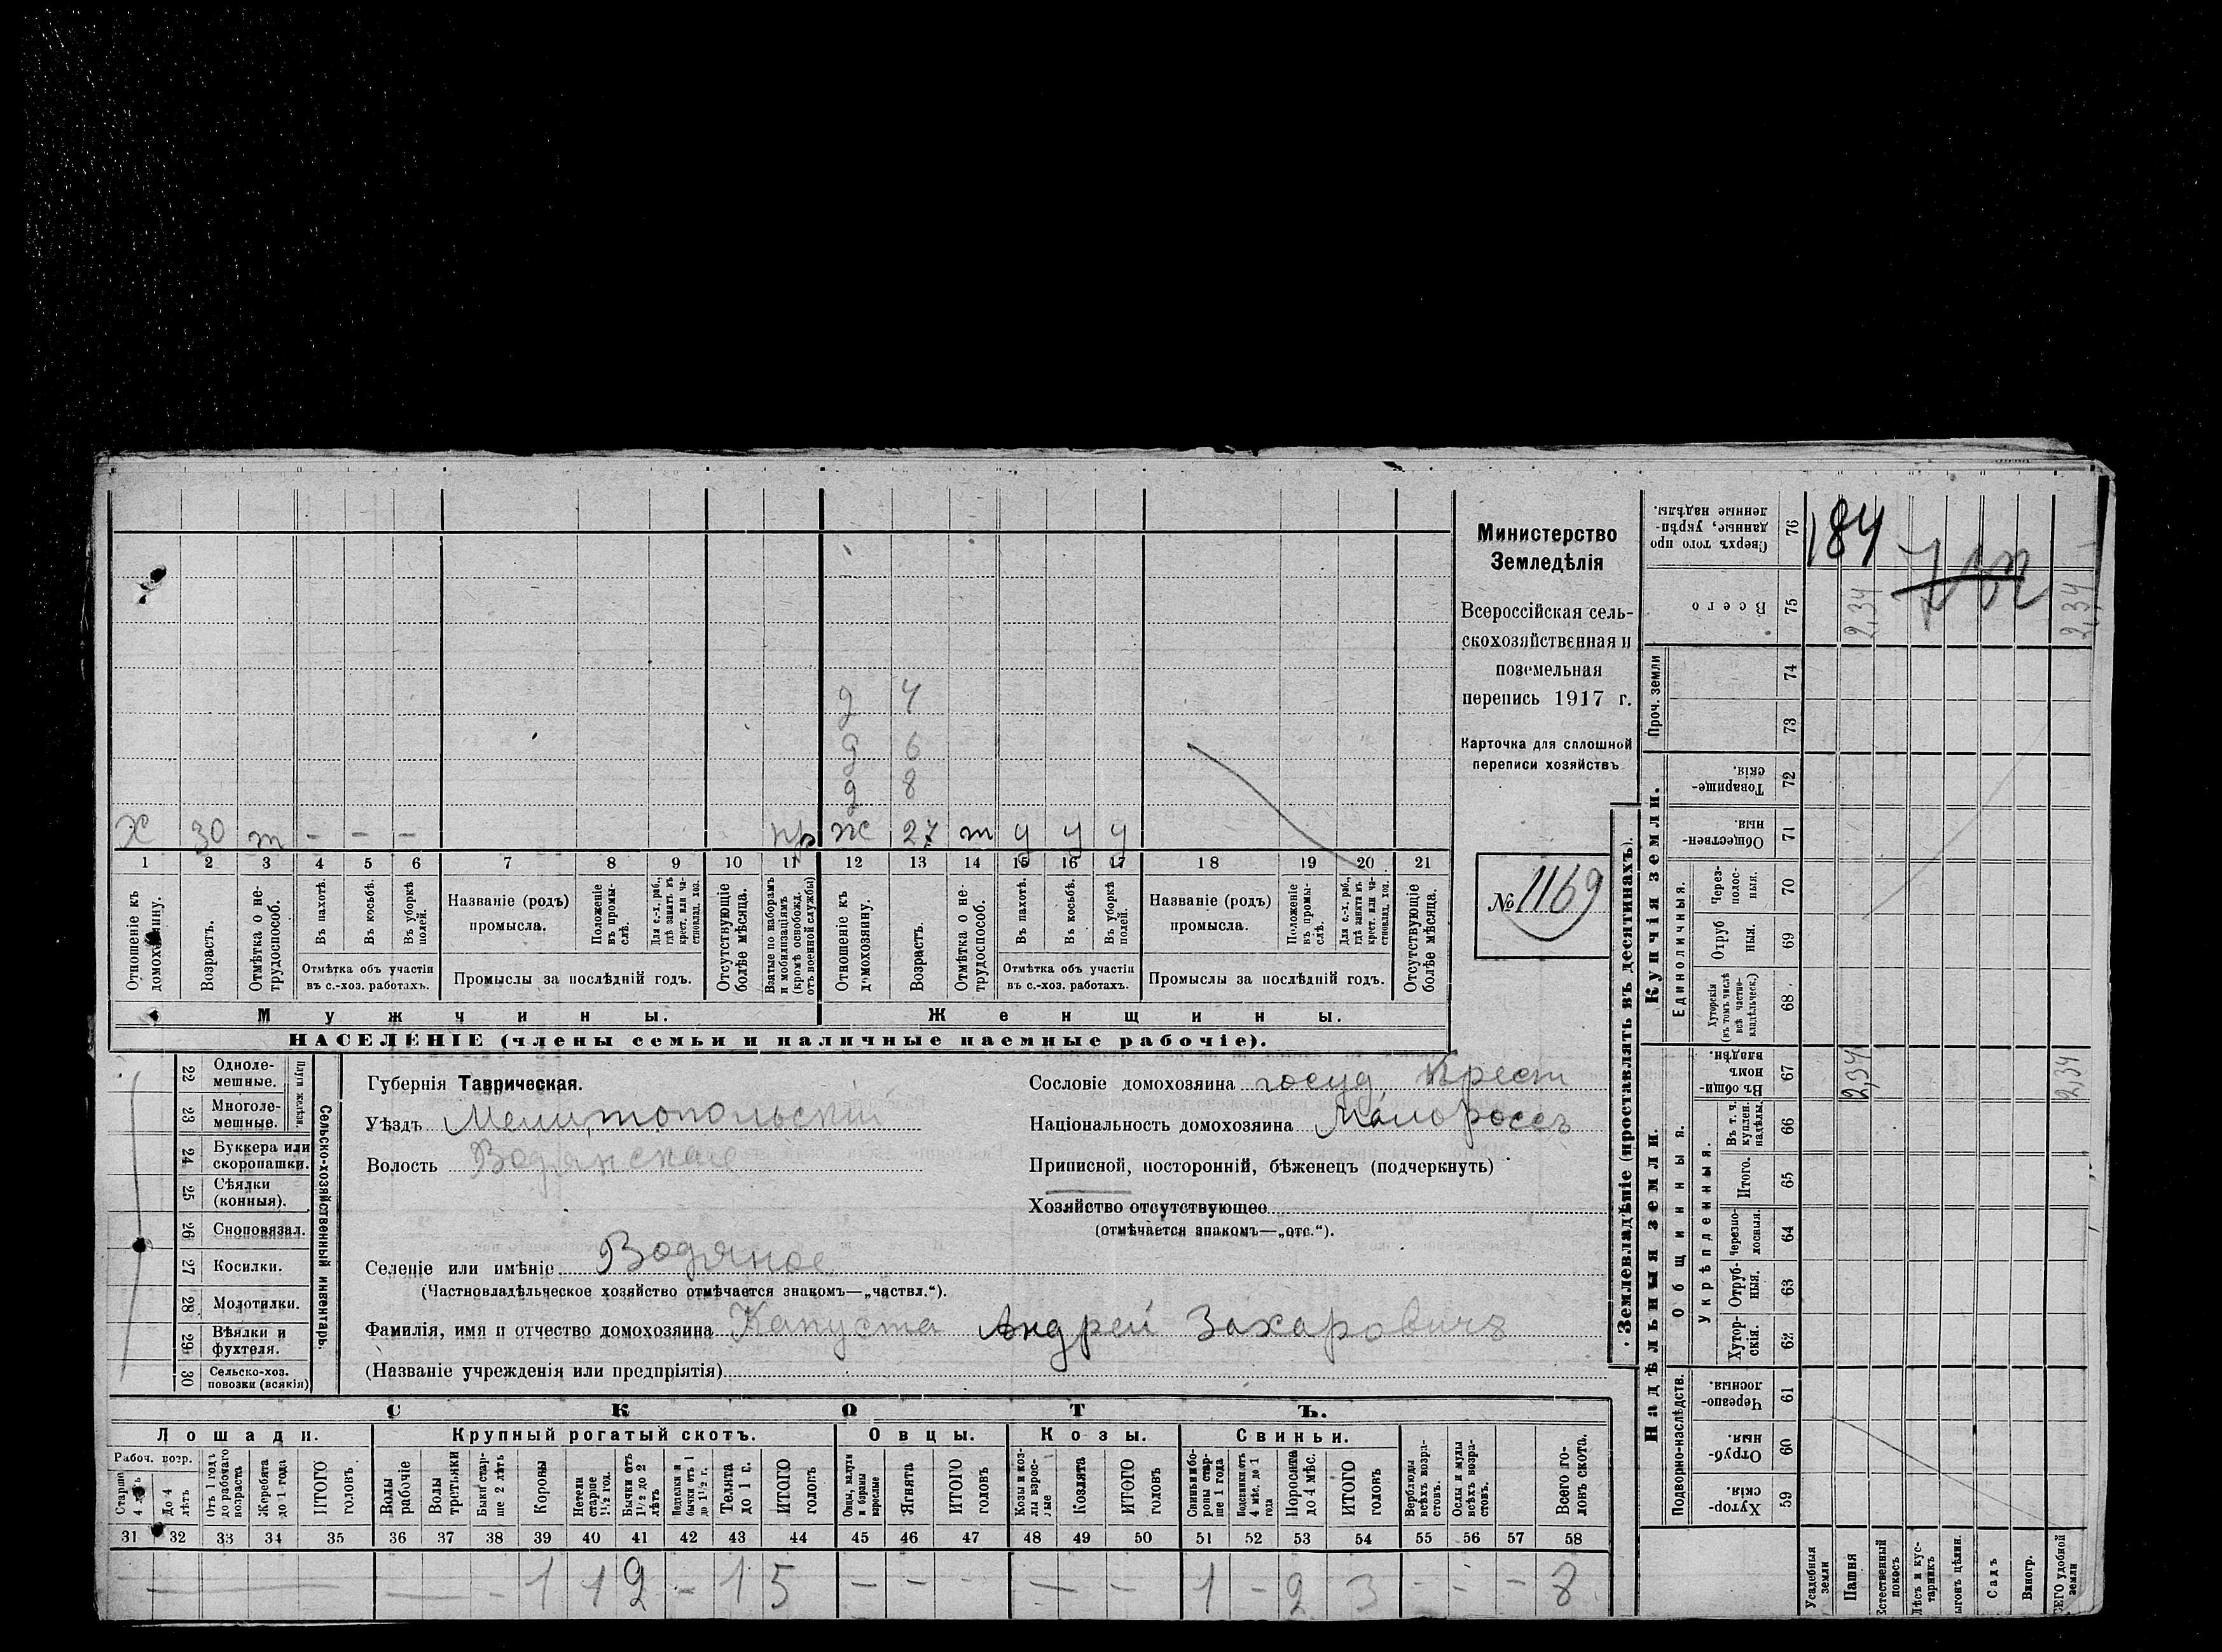 Министерство
Земледѣлія
Всероссійская сель-
скохозяйственная и
поземельная
перепись 1917 г.
Карточка для сплошной
переписи хозяйствъ
№ 1169
д 4
д 6
д 8
Х 30 т - - - пр ж 27 т у у у
1 2 3 4 5 6 7 8 9 10 11 12 13 14 15 16 17 18 19 20 21
Отношеніе къ домохозяину.
Возрастъ.
Отмѣтка о не-трудоспособ.
Въ пахотѣ.
Въ косьбѣ.
Въ уборкѣ полей.
Отмѣтка объ участіи
въ с.-хоз. работахъ.
Названіе (родъ)
промысла.
Положеніе въ промы-слѣ.
Для с.-х. раб., гдѣ занятъ въ крест. или ча-стновлад. хоз.
Промыслы за послѣдній годъ.
Отсутствующіе болѣе мѣсяца.
Взятые по наборамъ и мобилизаціямъ (кромѣ освобожд. отъ военной службы)
Отношеніе къ домохозяину.
Возрастъ.
Отмѣтка о не-трудоспособ.
Въ пахотѣ.
Въ косьбѣ.
Въ уборкѣ полей.
Отмѣтка объ участіи
въ с.-хоз. работахъ.
Названіе (родъ)
промысла.
Положеніе въ промы-слѣ.
Для с.-х. раб., гдѣ занята въ крест. или ча-стновлад. хоз.
Промыслы за послѣдній годъ.
Отсутствующіе болѣе мѣсяца.
Мужчины.
Женщины.
НАСЕЛЕНІЕ (члены семьи и наличные наемные рабочіе).
22 Одноле-мешные.
23 Многоле-мешные.
Плуги желѣзн.
24 Буккера или скоропашки.
25 Сѣялки (конныя).
26 Сноповязал.
27 Косилки.
28 Молотилки.
29 Вѣялки и фухтеля.
30 Сельско-хоз. повозки (всякія)
Сельско-хозяйственный инвентарь.
Губернія Таврическая.
Уѣздъ Мелитопольскій
Волость Водянская
Селеніе или имѣніе Водяное
(Частновладѣльческое хозяйство отмѣчается знакомъ—„частвл.“).
Фамилія, имя и отчество домохозяина Капуста Андрей Захаровичъ
(Названіе учрежденія или предпріятія)
Сословіе домохозяина госуд крест
Національность домохозяина Малороссъ
Приписной, посторонній, бѣженецъ (подчеркнуть)
Хозяйство отсутствующее
(отмѣчается знакомъ—„отс.“).
СКОТЪ.
Лошади. Крупный рогатый скотъ. Овцы. Козы. Свиньи.
Рабоч. возр.
Старше 4 лѣтъ
До 4 лѣтъ
Отъ 1 года до рабочаго возраста
Жеребята до 1 года
ИТОГО головъ
Волы рабочіе
Волы третьяки
Быки стар-ше 2 лѣтъ
Коровы
Нетели старше 1½ год.
Бычки отъ 1½ до 2 лѣтъ
Подтелки и бычки отъ 1 до 1½ г.
Телята до 1 г.
ИТОГО головъ
Овцы, валухи и бараны взрослые
Ягнята
ИТОГО головъ
Козы и коз-лы взрос-лые
Козлята
ИТОГО головъ
Свиньи и бо-ровы стар-ше 1 года
Подсвинки отъ 4 мѣс. до 1 года
Поросята до 4 мѣс.
ИТОГО головъ
Верблюды всѣхъ возра-стовъ.
Ослы и мулы всѣхъ возра-стовъ.
Всего го-ловъ скота.
31 32 33 34 35 36 37 38 39 40 41 42 43 44 45 46 47 48 49 50 51 52 53 54 55 56 57 58
— — - 1 1 2 - 1 5 - - - - - 1 - 2 3 - - - 8
Землевладѣніе (проставлять въ десятинахъ).
Купчія земли.
Надѣльныя земли.
Сверхъ того про-данные, укрѣп-ленные надѣлы. 76
184
Всего 75 2,34 2,34
Проч. земли 74
73
Товарище-скія. 72
Обществен-ныя. 71
Единоличныя.
Через-полос-ныя. 70
Отруб-ныя. 69
Хуторскія (въ томъ числѣ всѣ частно-владѣльческ.) 68
Общинныя.
Въ общин-номъ владѣн. 67 2,34 2,34
Укрѣпленныя.
Въ т. ч. куплен. надѣлы. 66
Итого. 65
Черезпо-лосныя. 64
Отруб-ныя. 63
Хутор-скія. 62
Подворно-наслѣдств.
Черезпо-лосныя. 61
Отруб-ныя. 60
Хутор-скія. 59
Усадебныя земли
Пашня
Естественный покосъ
Лѣсъ и кус-тарникъ
ыгонъ цѣлин.
Садъ
Виногр.
СЕГО удобной земли